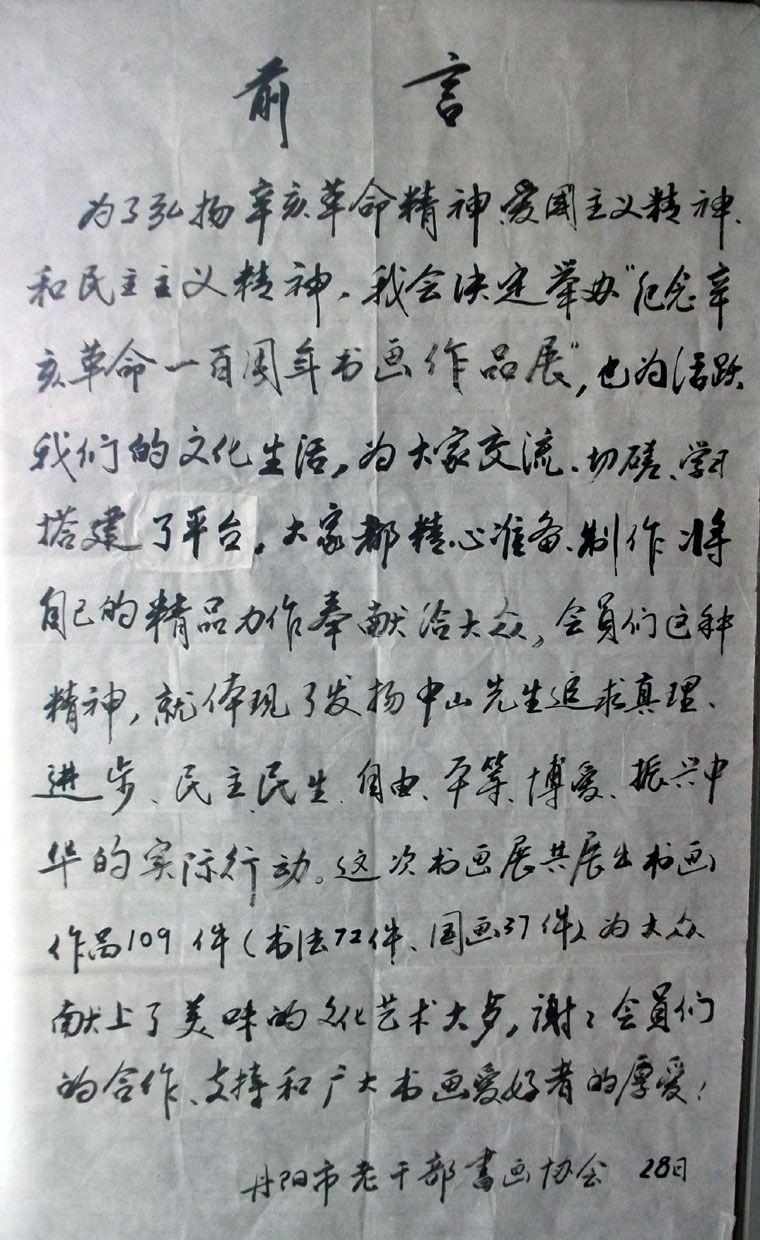 前言
为了弘扬辛亥革命精神、爱国主义精神、
和民主主义精神，我会决定举办“纪念辛
亥革命一百周年书画作品展”，也为活跃
我们的文化生活，为大家交流、切磋、学习
搭建了平台。大家都精心准备、制作将
自己的精品力作奉献给大众，会员们这种
精神，就体现了发扬中山先生追求真理、
进步、民主、民生、自由、平等、博爱、振兴中
华的实际行动。这次书画展共展出书画
作品109件（书法72件、国画37件）为大众
献上了美味的文化艺术大歺，谢谢会员们
的合作、支持和广大书画爱好者的厚爱！
丹阳市老干部書画协会 28日